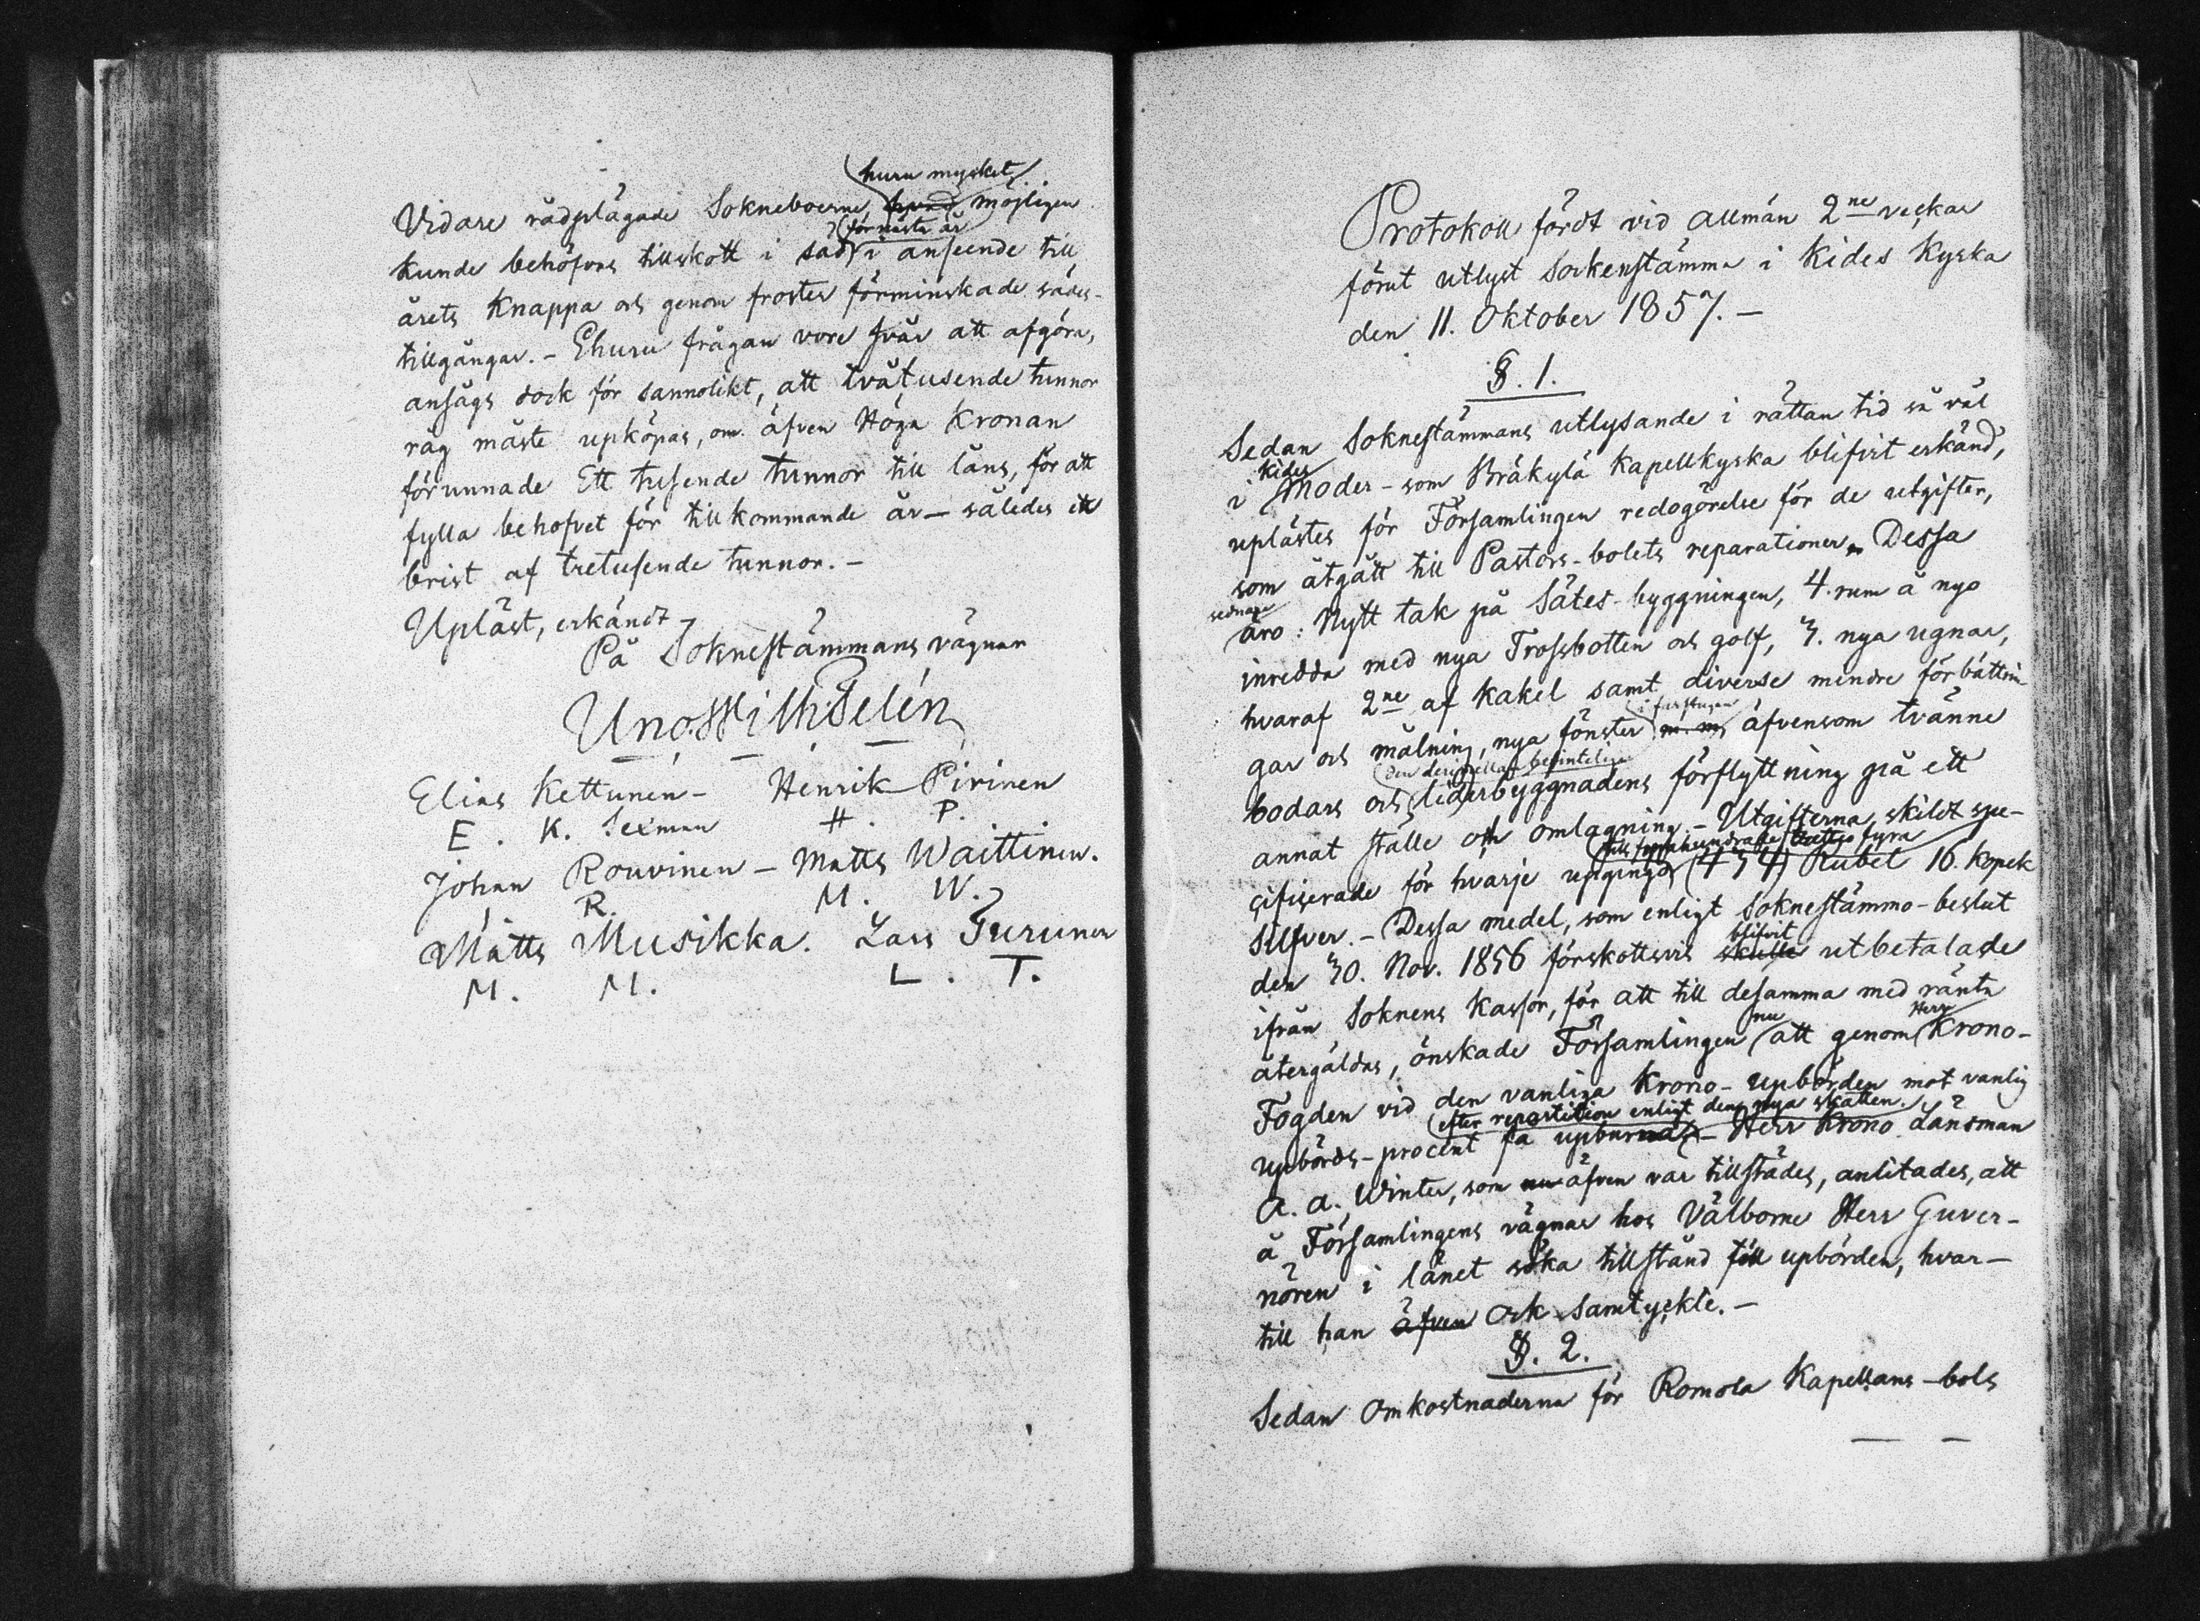 huru mycket
Vidare rådplägade Sokneboerne, hvad möjligen
för nästa år
kunde behöfvas tillskott i säd i anseende till
årets knappa och genom froster förminskade sädes-
tillgångar. - Ehuru frågan vore svår att afgöra,
ansågs dock för sannolikt, att tvåtusende tunnor
råg måste upköpas, om äfven Höga Kronan
förunnade Ett tusende tunnor till låns, för att
fylla behofvet för tillkommande år - således ett
brist af tretusende tunnor. -
Upläst, erkändt
På Soknestämmans vägnar
Uno Wilh: Telén
Elias Kettunen - Henrik Pirinen
E. K. Sexman H. P.
Johan Rouvinen - Matts Waittinen.
R. M. W.
Matts Musikka. Lars Turunen
M. M. L. T.
Protokoll fördt vid allmän 2ne veckar
förut utlyst Sockenstämma i Kides Kyrka
den 11. Oktober 1857. -
§. 1.
Sedan Soknestämmans utlysande i rättan tid så väl
Kides
i Moder - som Bräkylä Kapellkyrka blifvit erkänd,
uplästes för Församlingen redogörelse för de utgifter,
som åtgått till Pastors-bolets reparationer. Dessa
sednare
äro: Nytt tak på Sätes-byggningen, 4. rum å nyo
inredda med nya Trossbotten och golf, 3. nya ugnar,
hvaraf 2ne af kakel samt diverse mindre förbättrin-
i farstugan
gar och målning, nya fönster m. m. äfvensom tvänne
den deremellan befintliga
bodars och liderbyggnadens förflyttning på ett
annat ställe och omlagning. - Utgifterna, skildt spe-
till fyrahundrade trettio fyra
cifiserade för hvarje upgingo (434) Rubel 16. Kopek
Silfver. - Dessa medel, som enligt Soknestämmo-beslut
blifvit
den 30. Nov. 1856 förskottsvis skulle utbetalade
ifrån Soknens Kassor, för att till desamma med ränta
nu Herr
återgäldas, önskade Församlingen att genom Krono-
Fogden vid den vanliga Krono-upbörden mot vanlig
efter repartition enligt den nya skatten.
upbörds-procent få upburnas - Herr Krono Länsman
A. A. Winter, som nu äfven var tillstädes, anlitades, att
å Församlingens vägnar hos Välborne Herr Guver-
nören i länet söka tillstånd till upbörden, hvar-
till han äfven ock samtyckte. -
§. 2.
Sedan Omkostnaderna för Romola Kapellans-bols